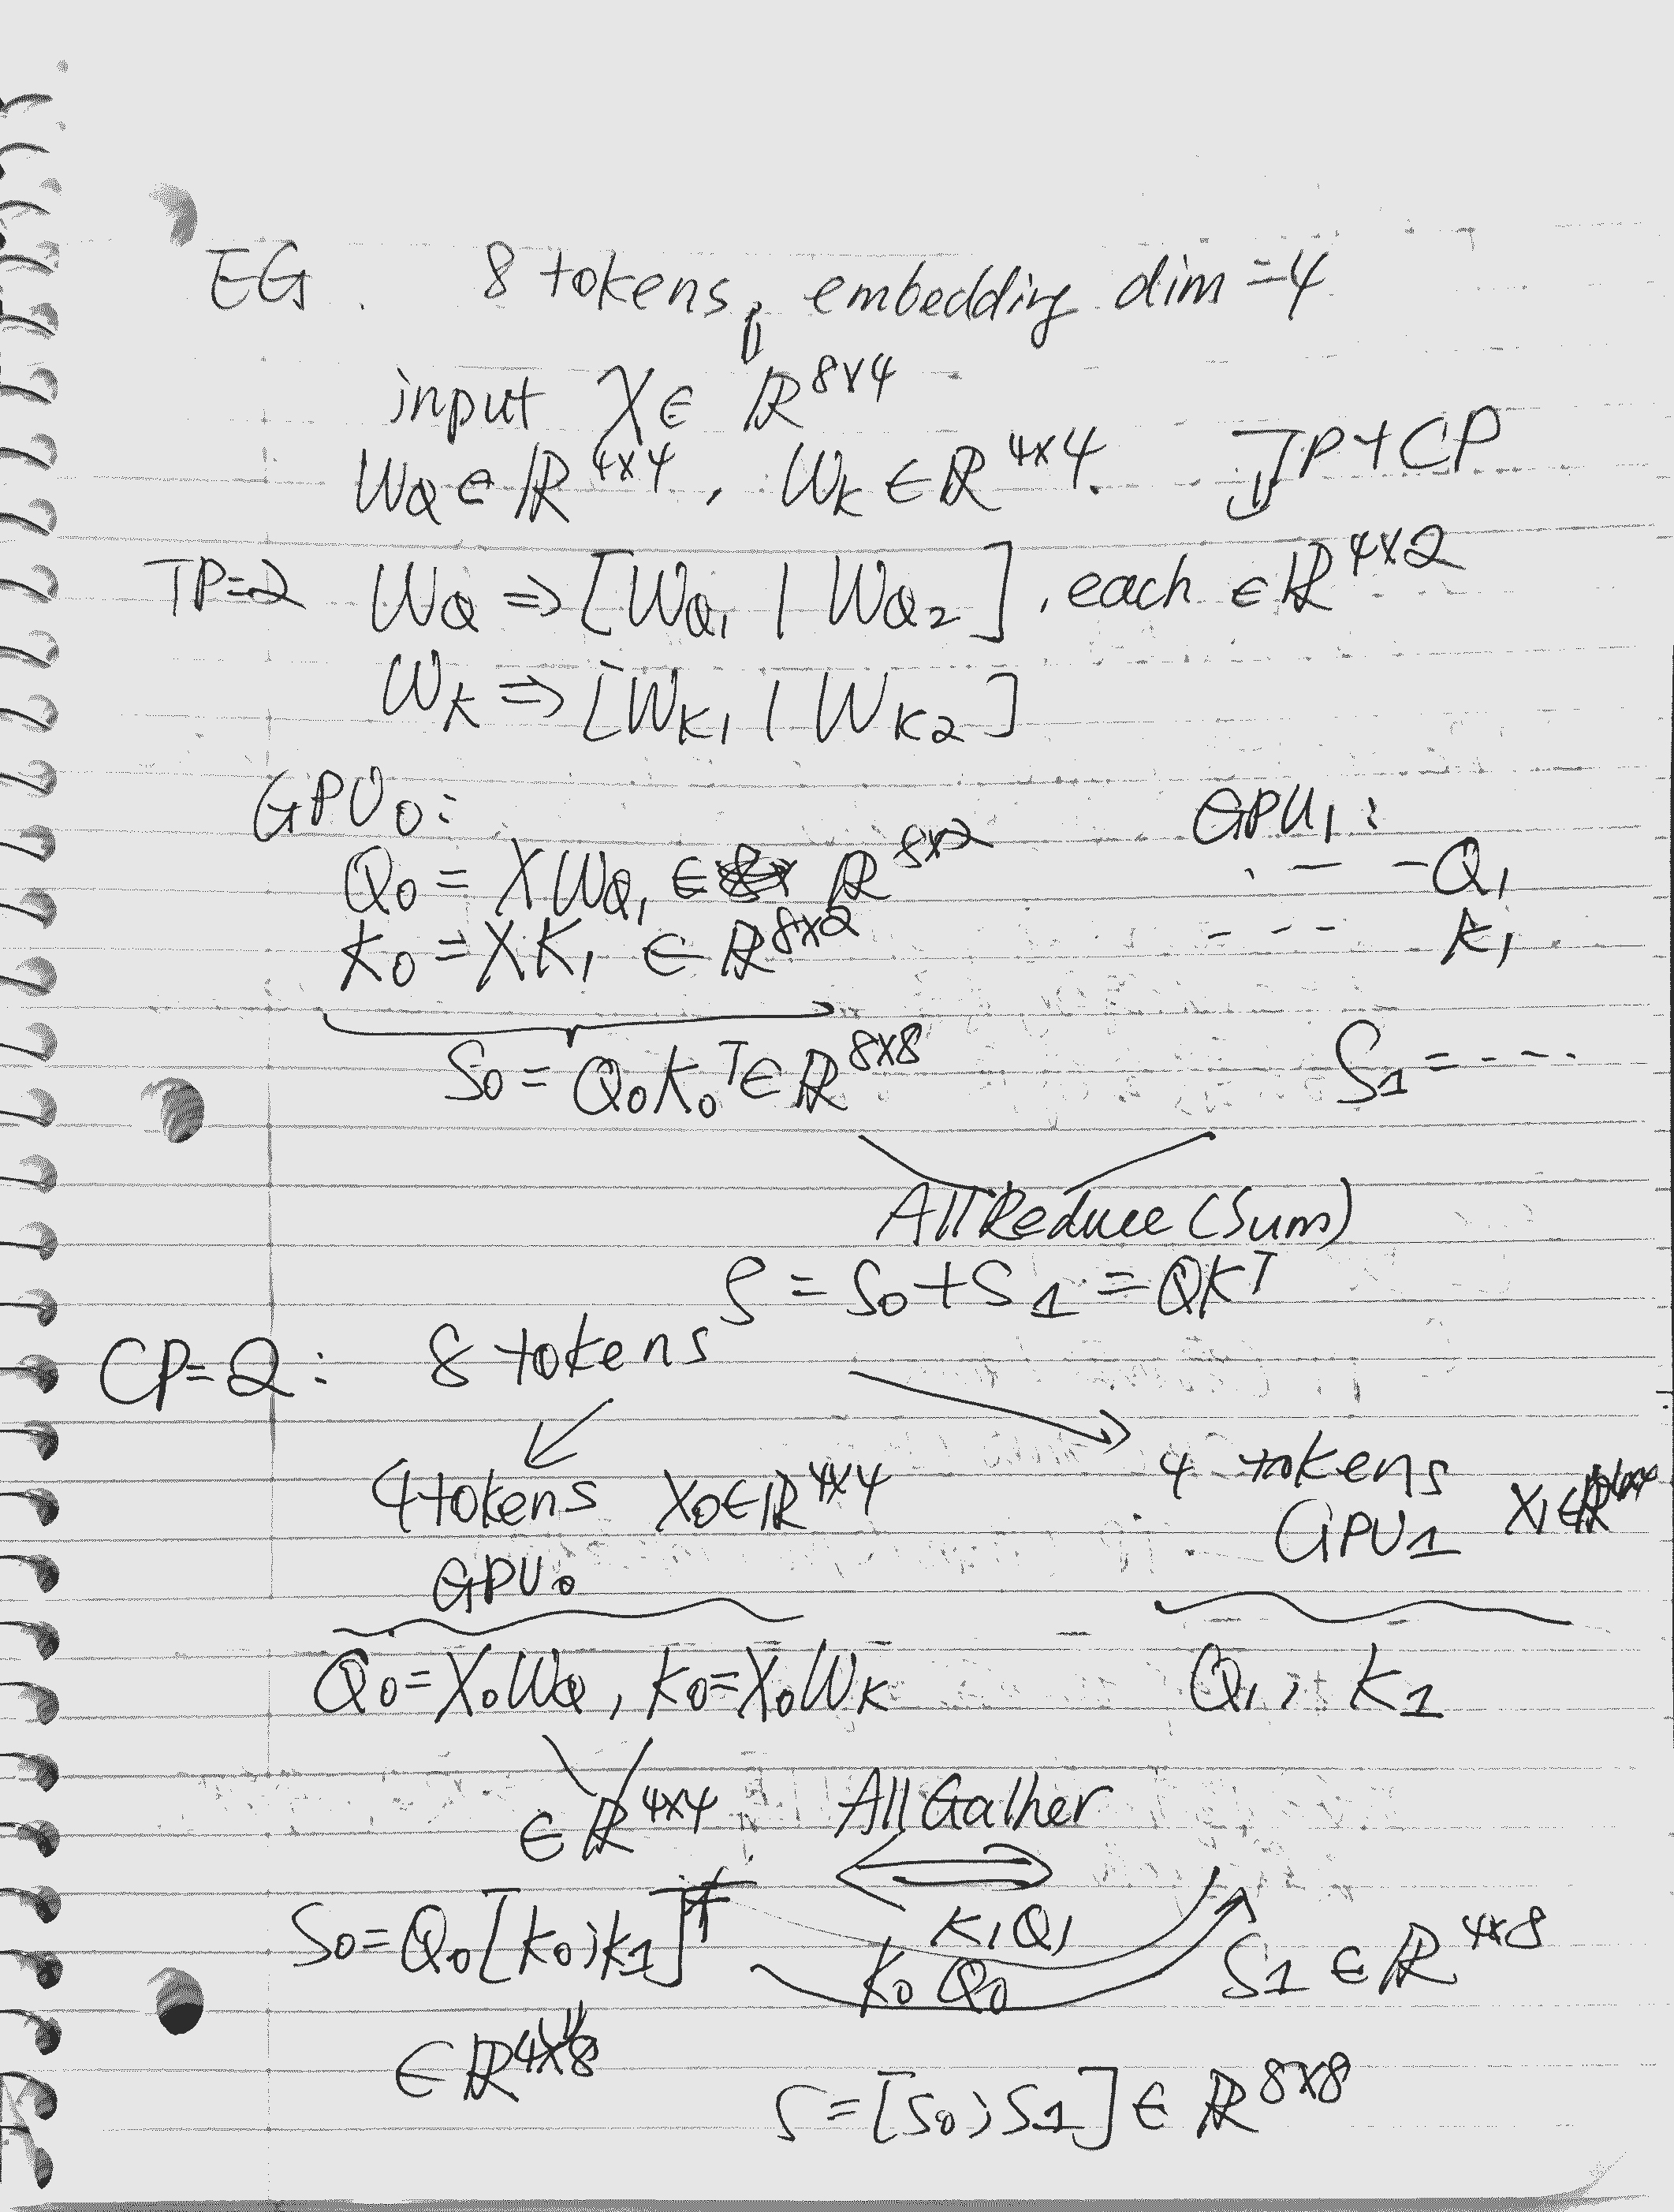 EG. 8 tokens, embedding dim=4
input X ∈ ℝ^{8×4}
W_Q ∈ ℝ^{4×4}, W_K ∈ ℝ^{4×4}. TP+CP
TP=2 W_Q ⇒ [W_{Q1} | W_{Q2}], each ∈ ℝ^{4×2}
W_K ⇒ [W_{K1} | W_{K2}]
GPU_0: GPU_1:
Q_0 = XW_{Q1} ∈ ℝ^{8×2} . - - Q_1
K_0 = XK_1 ∈ ℝ^{8×2} - - - K_1
S_0 = Q_0K_0^T ∈ ℝ^{8×8} S_1 = ----
AllReduce (Sum)
S = S_0 + S_1 = QK^T
CP=2: 8 tokens
4 tokens X_0 ∈ ℝ^{4×4} 4 tokens
GPU_0 GPU_1 X_1 ∈ ℝ^{4×4}
Q_0 = X_0W_Q, K_0 = X_0W_K Q_1, K_1
∈ ℝ^{4×4} AllGather
K_1Q_1
S_0 = Q_0[K_0; K_1]^T K_0Q_0 S_1 ∈ ℝ^{4×8}
∈ ℝ^{4×8}
S = [S_0; S_1] ∈ ℝ^{8×8}